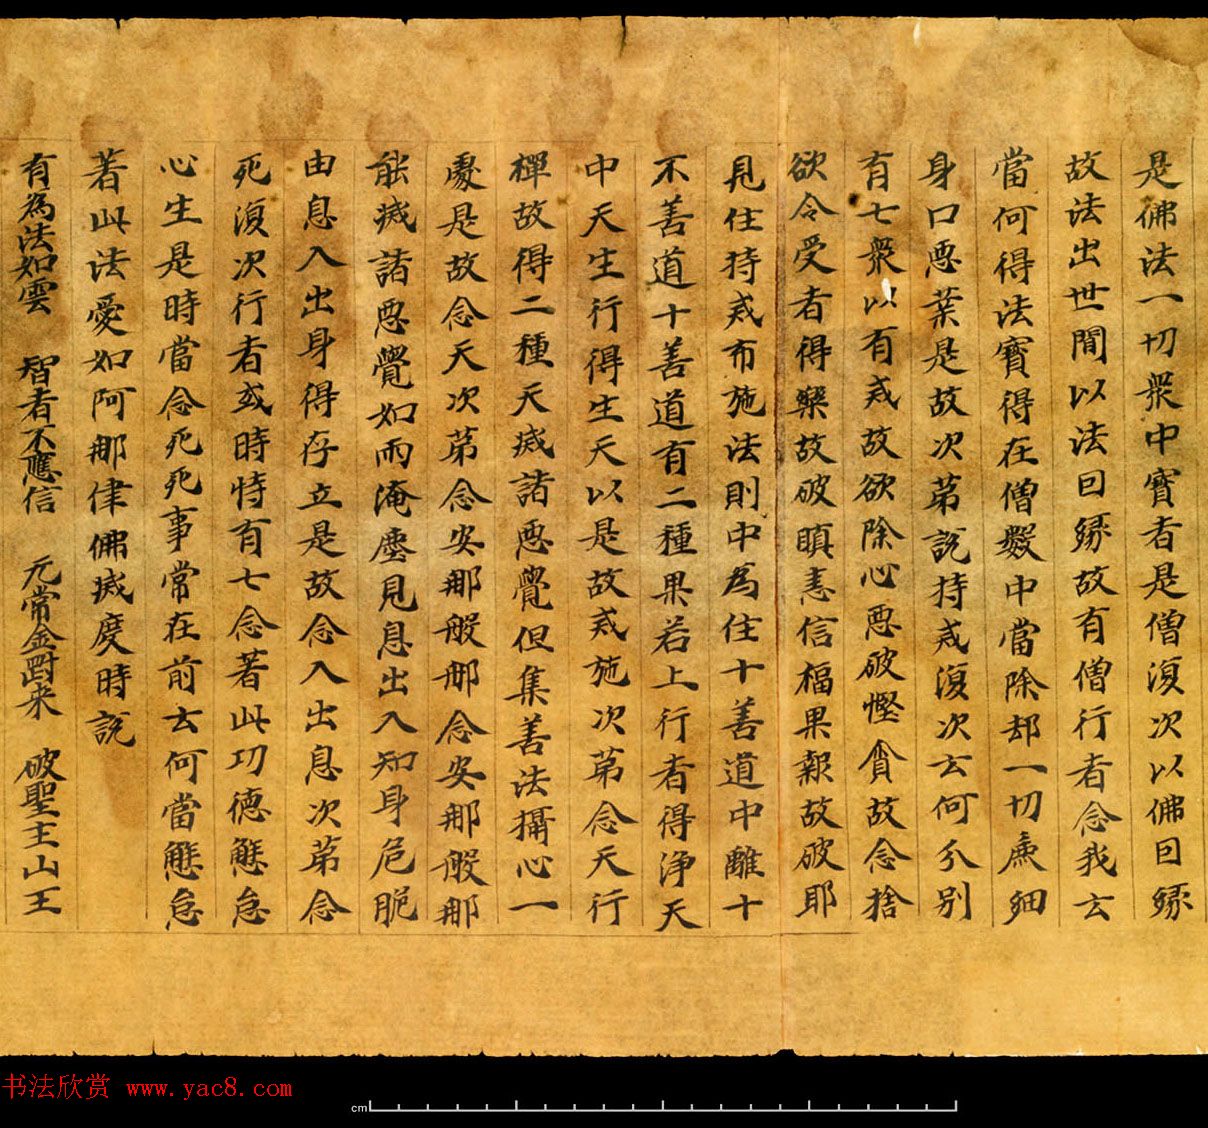 是佛法一切衆中寶者是僧復次以佛因緣
故法出世間以法因緣故有僧行者念我云
當何得法寶得在僧數中當除却一切麁細
身口惡業是故次第説持戒復次云何分別
有七衆以有戒故欲除心惡破慳貪故念捨
欲令受者得樂故破瞋恚信福果報故破耶
見住持戒布施法則中為住十善道中離十
不善道十善道有二種果若上行者得淨天
中天生行得生天以是故戒施次第念天行
禪故得二種天滅諸惡覺但集善法攝心一
處是故念天次第念安那般那念安那般那
能滅諸惡覺如雨淹塵見息出入知身危脆
由息入出身得存立是故念入出息次第念
死復次行者或時恃有七念著此功德懈怠
心生是時當念死死事常在前云何當懈怠
著此法愛如阿那律佛滅度時説
有為法如雲 智者不應信 无常金對来 破聖主山王
书法欣赏 www.yac8.com
cm